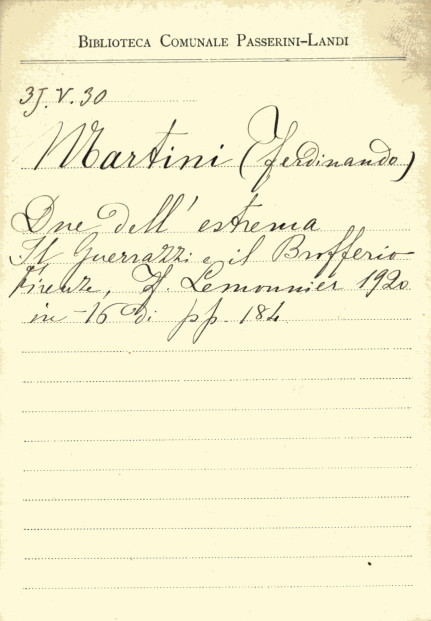 BIBLIOTECA COMUNALE PASSERINI-LANDI
3J.V.30
Martini (Ferdinando)
Due dell' estrema
Il Guerrazzi e il Brofferio
Firenze, F. Lemonnier 1920
in-16 di pp. 184